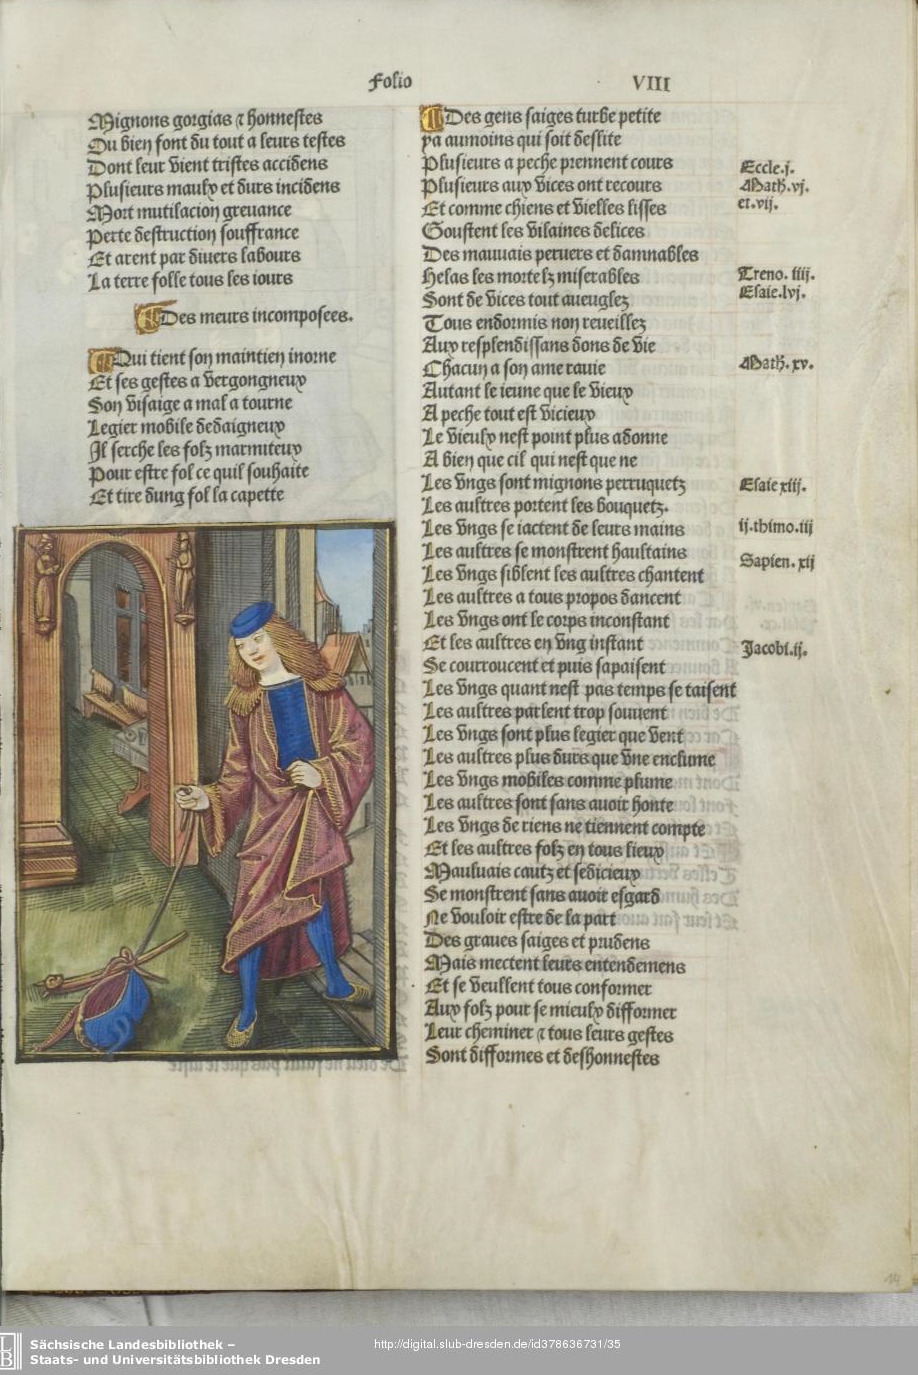 Folio VIII
Mignons gorgias ⁊ honnestes
Ou bien font du tout a leurs testes
Dont leur vient tristes accidens
Plusieurs maulx et durs incidens
Mort mutilacion greuance
Perte destruction souffrance
Et arent par diuers labours
La terre folle tous les iours
Des meurs incomposees.
Qui tient son maintien inorne
Et ses gestes a vergongneux
Son visaige a mal a tourne
Legier mobile dedaigneux
Il serche les folz marmiteux
Pour estre fol ce quil souhaite
Et tire dung fol la capette
Des gens saiges turbe petite
ya aumoins qui soit deslite
Plusieurs a peche prennent cours
Plusieurs aux vices ont recours
Et comme chiens et vielles lisses
Soustent les vilaines delices
Des mauuais peruers et damnables
Helas les mortelz miserables
Sont de vices tout aueuglez
Tous endormis non reueillez
Aux resplendissans dons de vie
Chacun a son ame rauie
Autant le ieune que le vieux
A peche tout est vicieux
Le vieulx nest point plus adonne
A bien que cil qui nest que ne
Les vngs sont mignons perruquetz
Les aultres portent les bouquetz.
Les vngs se iactent de leurs mains
Les aultres se monstrent haultains
Les vngs siblent les aultres chantent
Les aultres a tous propos dancent
Les vngs ont le corps inconstant
Et les aultres en vng instant
Se courroucent et puis sapaisent
Les vngs quant nest pas temps se taisent
Les aultres parlent trop souuent
Les vngs sont plus legier que vent
Les aultres plus durs que vne enclume
Les vngs mobiles comme plume
Les aultres sont sans auoir honte
Les vngs de riens ne tiennent compte
Et les aultres folz en tous lieux
Mauluais cautz et sedicieux
Se monstrent sans auoir esgard
Ne vouloir estre de la part
Des graues saiges et prudens
Mais mectent leurs entendemens
Et se veullent tous conformer
Aux folz pour se mieulx difformer
Leur cheminer ⁊ tous leurs gestes
Sont difformes et deshonnestes
Eccle.j.
Math.vj.
et.vij.
Treno.iiij.
Esaie.lvj.
Math.xv.
Esaie xiij.
ij.thimo.iij
Sapien.xij
Jacobi.ij.
Sächsische Landesbibliothek –
Staats- und Universitätsbibliothek Dresden
http://digital.slub-dresden.de/id378636731/35